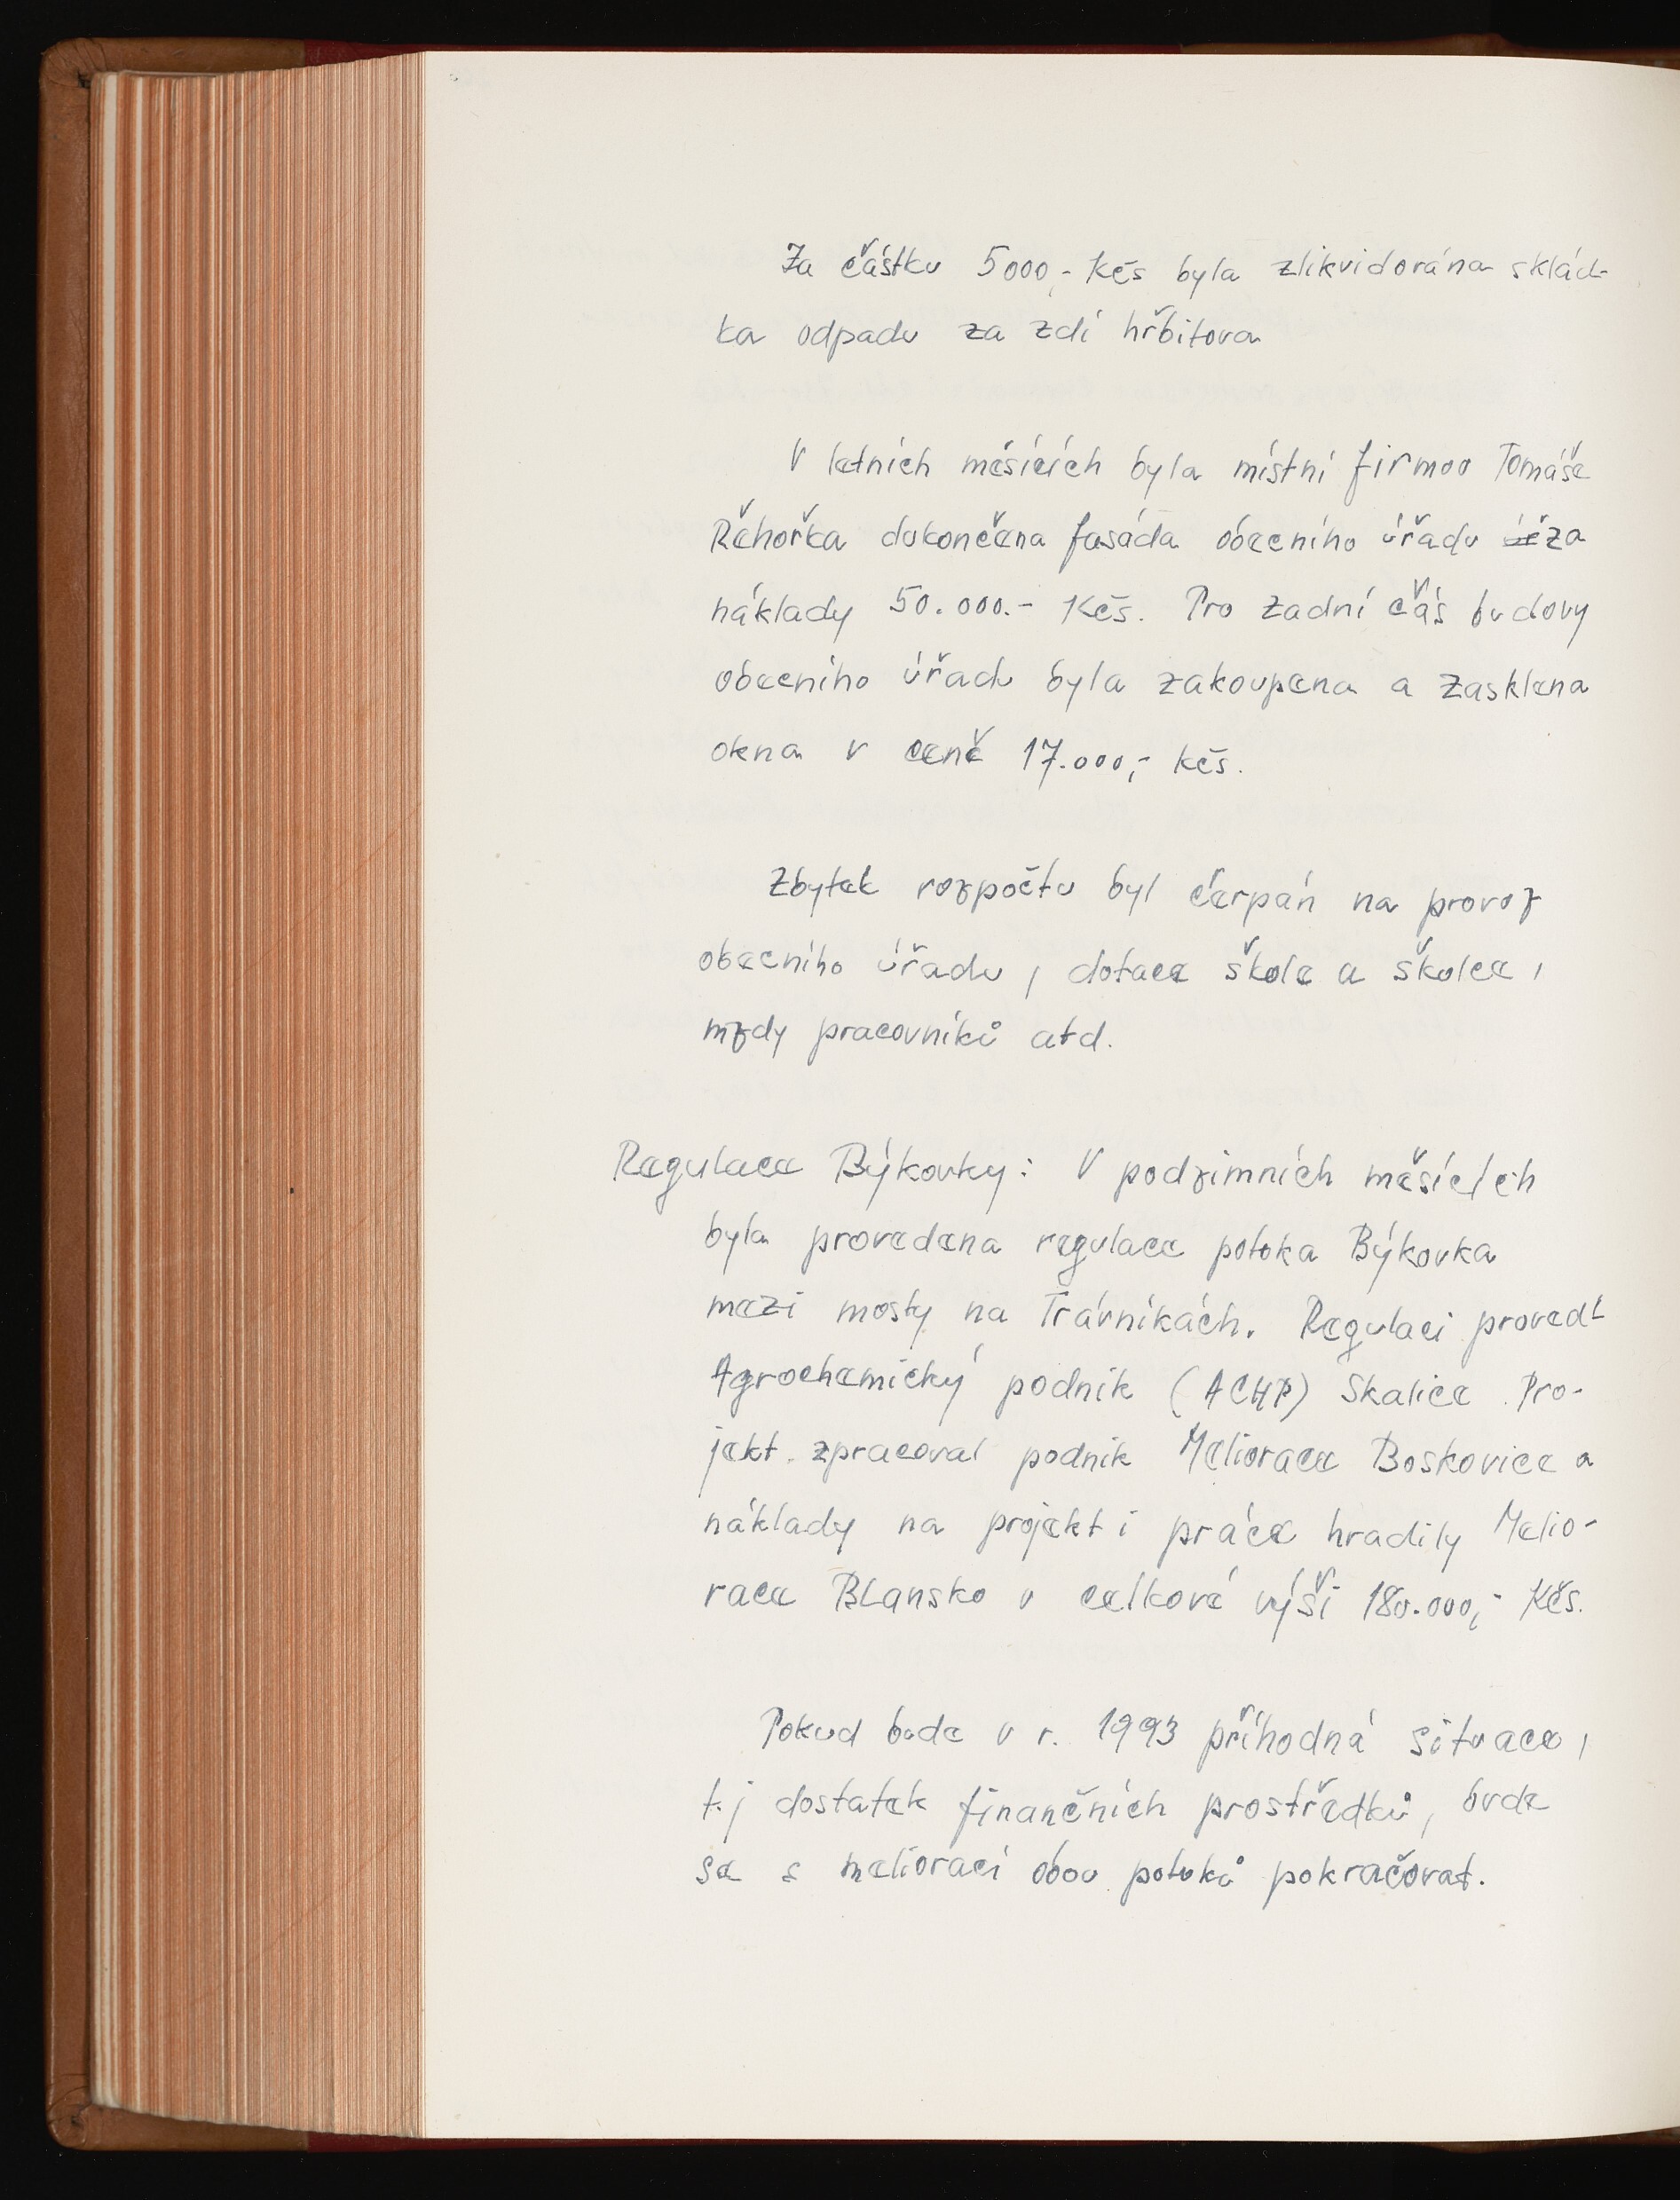 Za částku 5000,- Kčs byla zlikvidována sklád-
ka odpadu za zdí hřbitova
V letních měsících byla místní firmou Tomáše
Řehořka dokončena fasáda obecního úřadu za
náklady 50.000.- Kčs. Pro zadní čás budovy
obecního úřadu byla zakoupena a zasklena
okna v ceně 17.000,- Kčs.
Zbytek rozpočtu byl čerpán na provoz
obecního úřadu, dotace škole a školce,
mzdy pracovníků atd.
Regulace Býkovky: V podzimních měsících
byla provedena regulace potoka Býkovka
mezi mosty na Trávníkách. Regulaci provedl
Agrochemický podnik (ACHP) Skalice. Pro-
jekt zpracoval podnik Meliorace Boskovice a
náklady na projekt i práce hradily Melio-
race Blansko v celkové výši 180.000,- Kčs.
Pokud bude v r. 1993 příhodná situace,
t.j dostatek finančních prostředků, bude
se s meliorací obou potoků pokračovat.